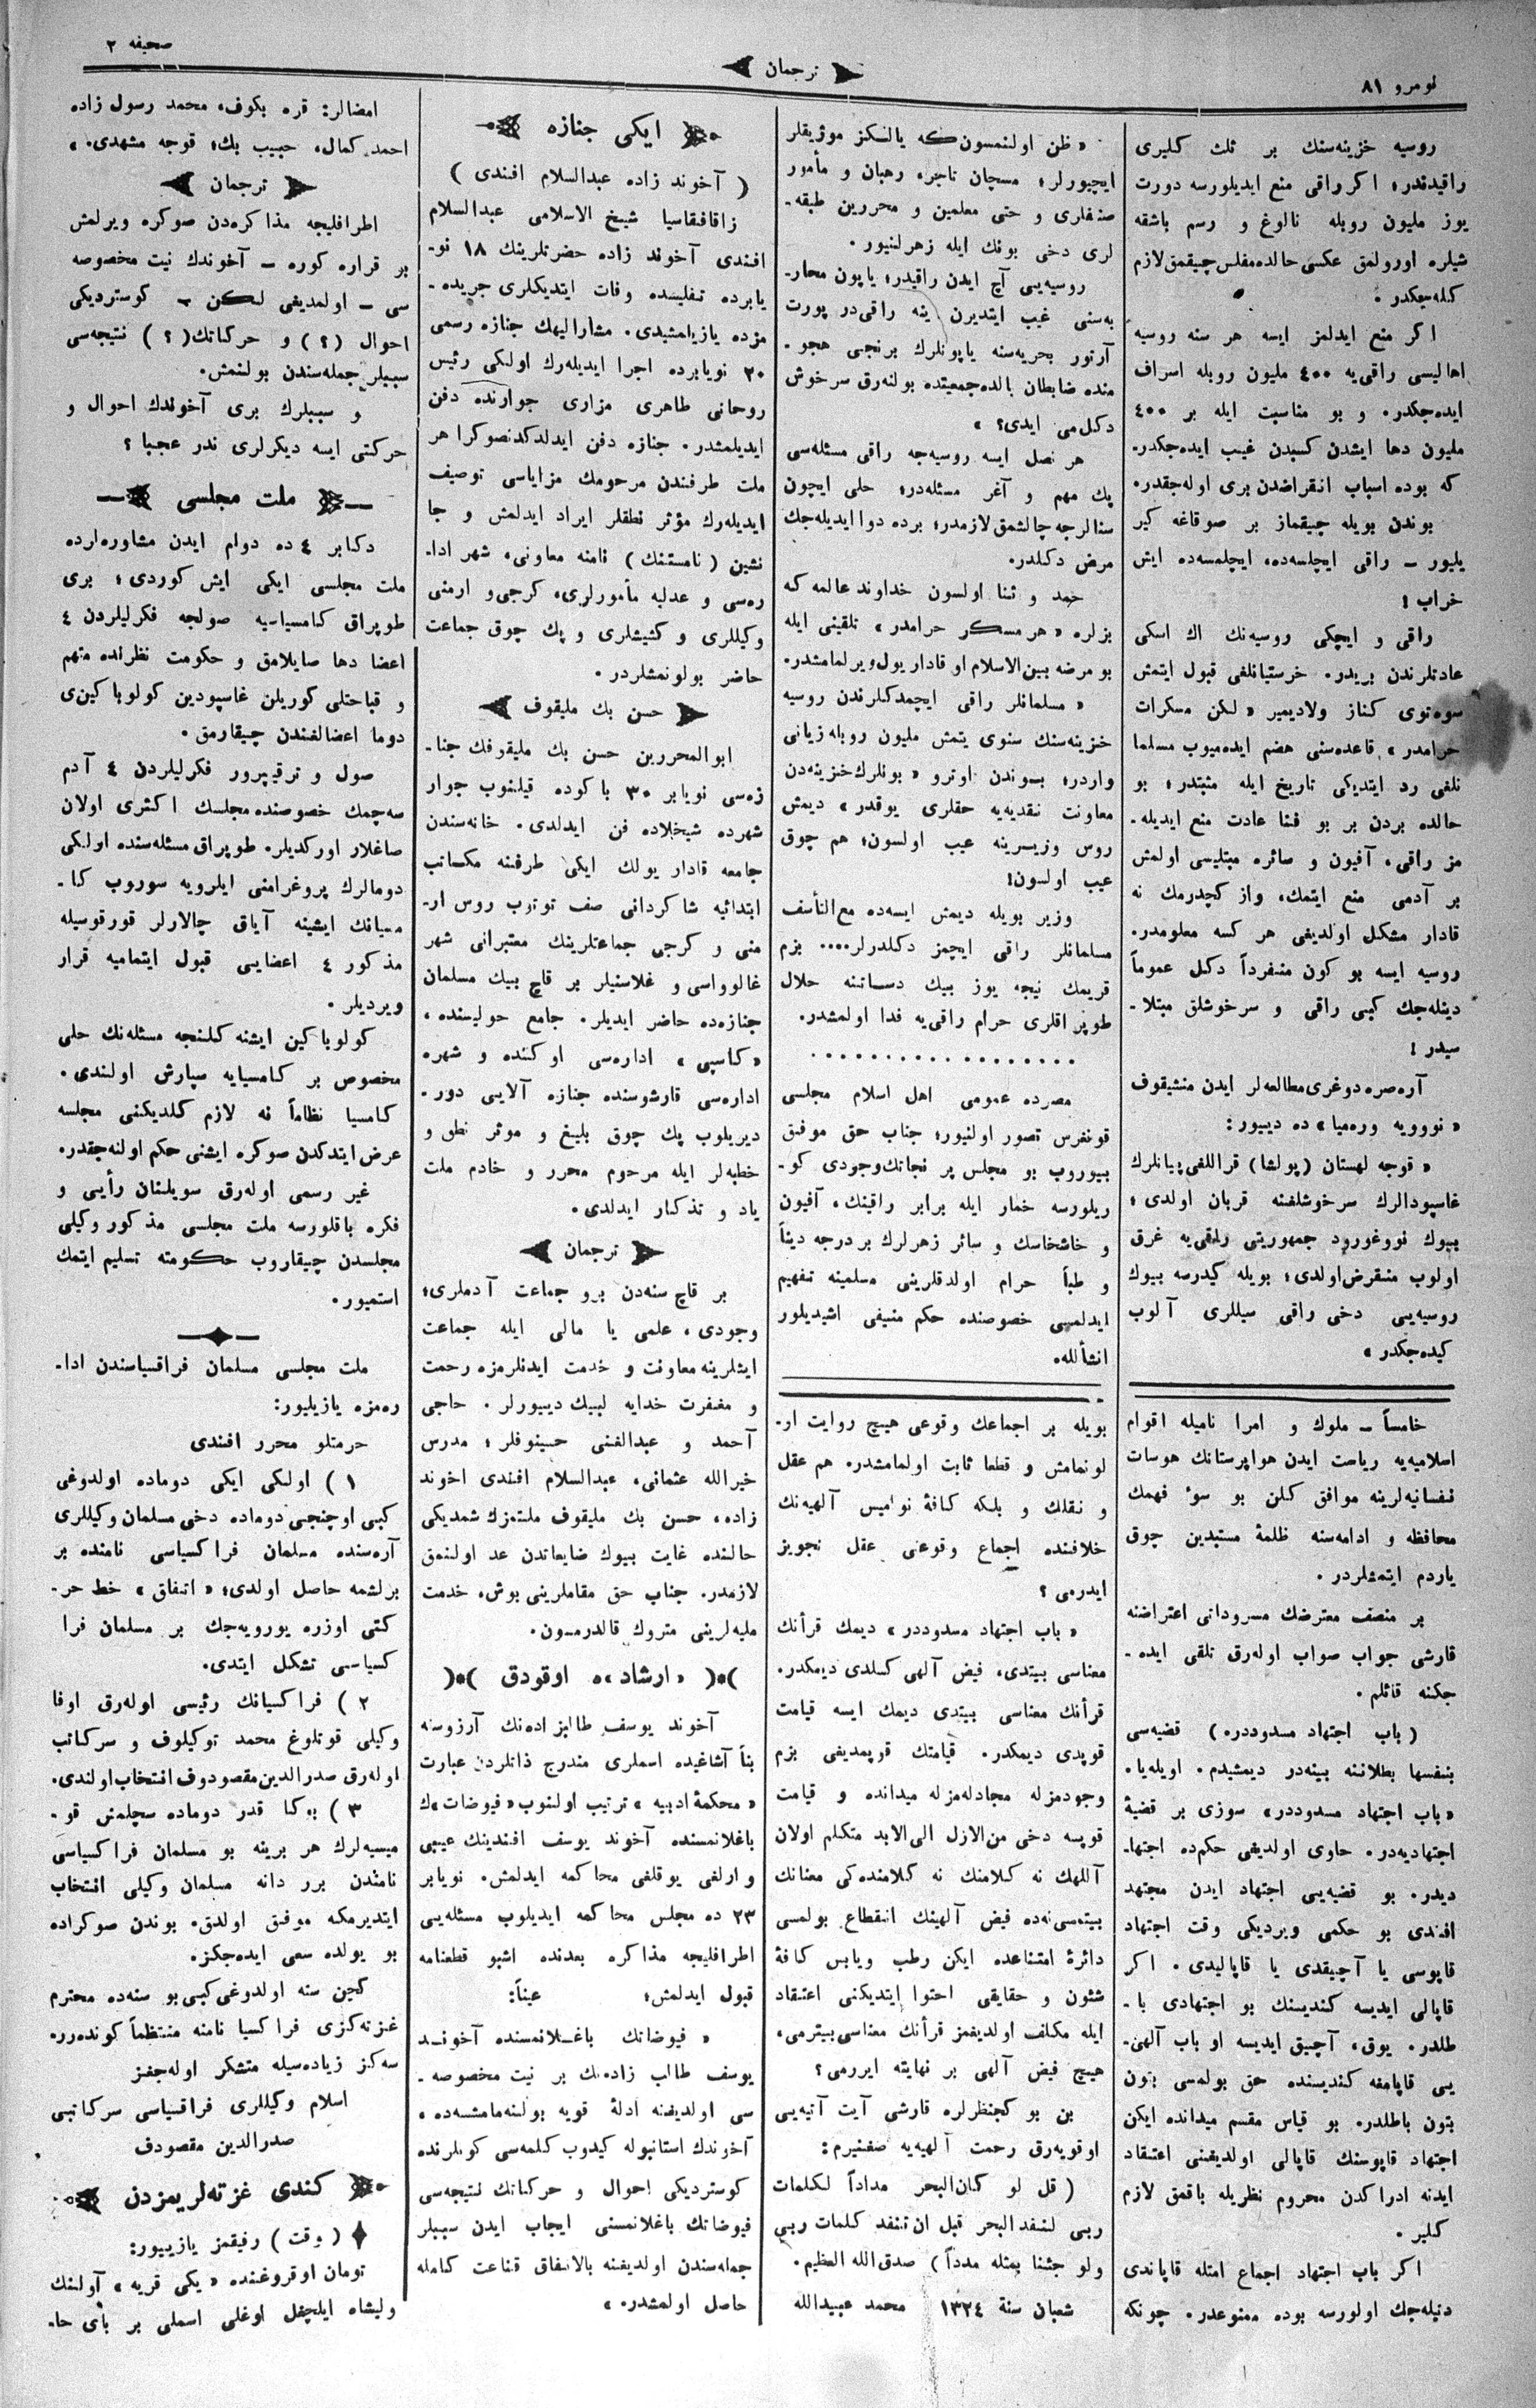 نومرو ٨١
ترجمان
صحیفه ٢
روسیه خزینه‌سنك بر ثلث كلیری
راقیدندر؛ اكر راقی منع ایدیلورسه دورت
یوز ملیون روبله نالوغ و رسم باشقه
شیلره اورولمق عكسی حالده مفلس چیقمق لازم
كله‌جكدر .
اكر منع ایدلمز ایسه هر سنه روسیه
اهالیسی راقی‌یه ٤٠٠ ملیون روبله اسراف
ایده‌جكدر. و بو مناسبت ایله بر ٤٠٠
ملیون دها ایشدن كسبدن غیب ایده‌جكدر.
كه بوده اسباب انقراضدن بری اوله‌جقدر.
بوندن بویله چیقماز بر صوقاغه كیر
یلیور – راقی ایچلسه‌ده، ایچلمسه‌ده ایش
خراب !
راقی و ایچكی روسیه‌نك اك اسكی
عادتلرندن بریدر. خرستیانلغی قبول ایتمش
سوه‌توی كناز ولادیمیر «لكن مسكرات
حرامدر» قاعده‌سنی هضم ایده‌میوب مسلما
نلغی رد ایتدیكی تاریخ ایله مثبتدر؛ بو
حالده بردن بر بو فنا عادت منع ایدیله-
مز راقی، آفیون و سائره مبتلیسی اولمش
بر آدمی منع ایتمك، واز كچدرمك نه
قادار مشكل اولدیغی هر كسه معلومدر.
روسیه ایسه بو كون منفرداً دكل عموماً
دینله‌جك كبی راقی و سرخوشلق مبتلا-
سیدر !
آره‌صره دوغری مطالعه‌لر ایدن منشیقوف
« نوویه وره‌میا» ده دیییور:
« قوجه لهستان (پولشا) قراللغی پیانلرك
غاسپودالرك سرخوشلغنه قربان اولدی؛
بیوك نووغورود جمهوریتی راقی‌یه غرق
اولوب منقرض اولدی؛ بویله كیدرسه بیوك
روسیه‌یی دخی راقی سیللری آلوب
كیده‌جكدر »
خامساً – ملوك و امرا نامیله اقوام
اسلامیه‌یه ریاست ایدن هواپرستانك هوسات
نفسانیه‌لرینه موافق كلن بو سوء فهمك
محافظه و ادامه‌سنه ظلمهٔ مستبدین چوق
یاردم ایتمشلردر .
بر منصف معترضك مسروداتی اعتراضنه
قارشی جواب صواب اوله‌رق تلقی ایده-
جكنه قائلم .
(باب اجتهاد مسدوددر.) قضیه‌سی
بنفسها بطلاننه بینه‌در دیمشیدم. اویله‌یا.
«باب اجتهاد مسدوددر» سوزی بر قضیهٔ
اجتهادیه‌در. حاوی اولدیغی حكم‌ده اجتها-
دیدر. بو قضیه‌یی اجتهاد ایدن مجتهد
افندی بو حكمی ویردیكی وقت اجتهاد
قاپوسی یا آچیقدی یا قاپالیدی. اكر
قاپالی ایدیسه كندیسنك بو اجتهادی با-
طلدر. یوق، آچیق ایدیسه او باب آلهی-
یی قاپامغه كندیسنده حق بولمسی بتون
بتون باطلدر. بو قیاس مقسم میدانده ایكن
اجتهاد قاپوسنك قاپالی اولدیغنی اعتقاد
ایدنه ادراكدن محروم نظریله باقمق لازم
كلیر .
اكر باب اجتهاد اجماع امتله قاپاندی
دنیله‌جك اولورسه بوده ممنوعدر. چونكه
« ظن اولنمسون كه یالكز موژیقلر
ایچیورلر؛ مسچان تاجر، رهبان و مأمور
صنفلری و حتی معلمین و محررین طبقه-
لری دخی بونك ایله زهرلنیور .
روسیه‌یی آچ ایدن راقیدر؛ یاپون محار-
به‌سنی غیب ایتدیرن ینه راقی‌در پورت
آرتور بحریه‌سنه یاپونلرك برنجی هجو-
منده ضابطان بالده جمعیتده بولنه‌رق سرخوش
دكل‌می ایدی؟ »
هر نصل ایسه روسیه‌جه راقی مسئله‌سی
پك مهم و آغر مسئله‌در؛ حلی ایچون
سنالرجه چالشمق لازمدر؛ برده دوا ایدیله‌جك
مرض دكلدر.
حمد و ثنا اولسون خداوند عالمه كه
بزلره «هر مسكر حرامدر» تلقینی ایله
بو مرضه بین‌الاسلام او قادار یول ویرلمامشدر.
« مسلمانلر راقی ایچمدكلرندن روسیه
خزینه‌سنك سنوی یتمش ملیون روبله زیانی
واردر؛ بوندن اوترو «بونلرك خزینه‌دن
معاونت نقدیه‌یه حقلری یوقدر» دیمش
روس وزیرینه عیب اولسون؛ هم چوق
عیب اولسون!
وزیر بویله دیمش ایسه‌ده مع‌التأسف
مسلمانلر راقی ایچمز دكلدرلر.... بزم
قریمك نیچه یوز بیك دساتنه حلال
طوپراقلری حرام راقی‌یه فدا اولمشدر.
. . . . . . . . . . . . . . . . . .
مصرده عمومی اهل اسلام مجلسی
قونفرس تصور اولنیور؛ جناب حق موفق
بیوروب بو مجلس پر نجاتك وجودی كو-
ریلورسه خمار ایله برابر راقینك، آفیون
و خاشخاسك و سائر زهرلرك بر درجه دیناً
و طباً حرام اولدقلرینی مسلمینه تفهیم
ایدلمسی خصوصنده حكم منیفی اشیدیلور
انشأالله.
بویله بر اجماعك وقوعی هیچ روایت او-
لونمامش و قطعا ثابت اولمامشدر. هم عقل
و نقلك و بلكه كافهٔ نوامیس آلهیه‌نك
خلافنده اجماع وقوعنی عقل تجویز
ایدرمی ؟
« باب اجتهاد مسدوددر » دیمك قرأنك
معناسی بیتدی، فیض آلهی كسلدی دیمكدر.
قرأنك معناسی بیتدی دیمك ایسه قیامت
قوپدی دیمكدر. قیامتك قوپمدیغی بزم
وجودمزله مجادله‌مزله میدانده و قیامت
قوپسه دخی من‌الازل الی‌الابد متكلم اولان
آللهك نه كلامنك نه كلامنده‌كی معنانك
بیتمه‌سی نه‌ده فیض آلهینك انقطاع بولمسی
دائرهٔ امتناعده ایكن رطب ویابس كافهٔ
شئون و حقایقی احتوا ایتدیكنی اعتقاد
ایله مكلف اولدیغمز قرأنك معناسی بیترمی،
هیچ فیض آلهی بر نهایته ایررمی؟
بن بو كجنظرلره قارشی آیت آتیه‌یی
اوقویه‌رق رحمت آلهیه‌یه صغنیرم:
(قل لو كان‌البحر مداداً لكلمات
ربی لنفدالبحر قبل ان تنفد كلمات ربی
ولو جئنا بمثله مدداً) صدق الله العظیم.
شعبان سنة ١٣٢٤ محمد عبیدالله
ایكی جنازه
(آخوند زاده عبدالسلام افندی)
زاقافقاسیا شیخ الاسلامی عبدالسلام
افندی آخوند زاده حضرتلرینك ١٨ نو-
یابرده تفلیسده وفات ایتدیكلری جریده-
مزده یازیلمشیدی. مشارالیهك جنازه رسمی
٢٠ نویابرده اجرا ایدیله‌رك اولكی رئیس
روحانی طاهری مزاری جوارنده دفن
ایدیلمشدر. جنازه دفن ایدلدكدنصوكرا هر
ملت طرفندن مرحومك مزایاسی توصیف
ایدیله‌رك مؤثر نطقلر ایراد ایدلمش و جا
نشین (نامستنك) نامنه معاونی، شهر ادا-
ره‌سی و عدلیه مأمورلری، كرجی و ارمنی
وكیللری و كشیشلری و پك چوق جماعت
حاضر بولونمشلردر .
حسن بك ملیقوف
ابوالمحررین حسن بك ملیقوفك جنا-
زه‌سی نویابر ٣٠ باكوده قیلنوب جوار
شهرده شیخلاده فن ایدلدی. خانه‌سندن
جامعه قادار یولك ایكی طرفینه مكاتب
ابتدائیه شاكردانی صف توتوب روس ار-
منی و كرجی جماعتلرینك معتبرانی شهر
غالوواسی و غلاسنیلر بر قاچ بییك مسلمان
جنازه‌ده حاضر ایدیلر. جامع حولیسنده،
«كاسپی» اداره‌سی اوكنده و شهره
اداره‌سی قارشوسنده جنازه آلایی دور-
دیریلوب پك چوق بلیغ و موثر نطق و
خطبه‌لر ایله مرحوم محرر و خادم ملت
یاد و تذكار ایدلدی.
ترجمان
بر قاچ سنه‌دن برو جماعت آدملری؛
وجودی، علمی یا مالی ایله جماعت
ایشلرینه معاونت و خدمت ایدنلرمزه رحمت
و مغفرت خدایه لبیك دیییورلر. حاجی
آحمد و عبدالغنی حسینوفلر؛ مدرس
خیرالله عثمانی، عبدالسلام افندی اخوند
زاده، حسن بك ملیقوف ملتمزك شمدیكی
حالنده غایت بیوك ضایعاتدن عد اولنمق
لازمدر. جناب حق مقاملرینی بوش، خدمت
ملیه‌لرینی متروك قالدرمسون.
«ارشاد»ه اوقودق
آخوند یوسف طالبزاده‌نك آرزوسنه
بناً آشاغیده اسملری مندرج ذاتلردن عبارت
«محكمهٔ ادبیه» ترتیب اولنوب «فیوضات»ك
باغلانمسنده آخوند یوسف افندینك عیبی
وارلغی یوقلغی محاكمه ایدلمش. نویابر
٢٣ ده مجلس محاكمه ایدیلوب مسئله‌یی
اطرافلیجه مذاكره بعدنده اشبو قطعنامه
قبول ایدلمش؛ عیناً:
« فیوضاتك باغلانمسنده آخوند
یوسف طالب زاده‌نك بر نیت مخصوصه-
سی اولدیغنه ادلهٔ قویه بولنه‌مامشسه‌ده،
آخوندك استانبوله كیدوب كلمه‌سی كونلرنده
كوستردیكی احوال و حركاتك نتیجه‌سی
فیوضاتك باغلانمسنی ایجاب ایدن سببلر
جمله‌سندن اولدیغنه بالاتفاق قناعت كامله
حاصل اولمشدر. »
امضالر: قره بكوف، محمد رسول زاده
احمد كمال، حبیب بك، قوجه مشهدی. »
ترجمان
اطرافلیجه مذاكره‌دن صوكره ویرلمش
بر قراره كوره – آخوندك نیت مخصوصه
سی – اولمدیغی لكن – كوستردیكی
احوال (؟) و حركاتك (؟) نتیجه‌سی
سببلر جمله‌سندن بولنمش.
و سببلرك بری آخوندك احوال و
حركتی ایسه دیكرلری ندر عجبا ؟
ملت مجلسی
دكابر ٤ ده دوام ایدن مشاوره‌لرده
ملت مجلسی ایكی ایش كوردی؛ بری
طوپراق كامسیاسیه صولجه فكرلیلردن ٤
اعضا دها صایلامق و حكومت نظرنده متهم
و قباحتلی كوریلن غاسپودین كولوباكین‌ی
دوما اعضالغندن چیقارمق .
صول و ترقیپرور فكرلیلردن ٤ آدم
سه‌چمك خصوصنده مجلسك اكثری اولان
صاغلار اوركدیلر. طوپراق مسئله‌سنده اولكی
دومالرك پروغرامنی ایلرویه سوروب كا-
مسیانك ایشینه آیاق چالارلر قورقوسیله
مذكور ٤ اعضایی قبول ایتمامیه قرار
ویردیلر .
كولوباكین ایشنه كلنجه مسئله‌نك حلی
مخصوص بر كامسیایه سپارش اولندی.
كامسیا نظاماً نه لازم كلدیكنی مجلسه
عرض ایتدكدن صوكره ایشنی حكم اولنه‌جقدر.
غیر رسمی اوله‌رق سویلنان رأیی و
فكره باقلورسه ملت مجلسی مذكور وكیلی
مجلسدن چیقاروب حكومته تسلیم ایتمك
استمیور.
ملت مجلسی مسلمان فراقسیاسندن ادا-
ره‌مزه یازیلیور:
حرمتلو محرر افندی
١ ) اولكی ایكی دوماده اولدوغی
كبی اوچنجی دوماده دخی مسلمان وكیللری
آره‌سنده مسلمان فراكسیاسی نامنده بر
برلشمه حاصل اولدی؛ «اتفاق» خط حر-
كتی اوزره یورویه‌جك بر مسلمان فرا
كسیاسی تشكل ایتدی.
٢ ) فراكسیانك رئیسی اوله‌رق اوفا
وكیلی قوتلوغ محمد توكیلوف و سركاتب
اوله‌رق صدرالدین مقصودوف انتخاب اولندی.
٣ ) بوكا قدر دوماده سچلمش قو-
میسیه‌لرك هر برینه بو مسلمان فراكسیاسی
نامندن برر دانه مسلمان وكیلی انتخاب
ایتدیرمكه موفق اولدق. بوندن صوكراده
بو یولده سعی ایده‌جكز.
كچن سنه اولدوغی كبی بو سنه‌ده محترم
غزته‌كزی فراكسیا نامنه منتظماً كونده‌رر.
سه‌كز زیاده‌سیله متشكر اوله‌جغز
اسلام وكیللری فراقسیاسی سركاتبی
صدرالدین مقصودف
كندی غزته‌لریمزدن
(وقت) رفیقمز یازییور:
تومان اوقروغنده «یكی قریه» آولنك
ولیشاه ایلچقل اوغلی اسملی بر بای حا-